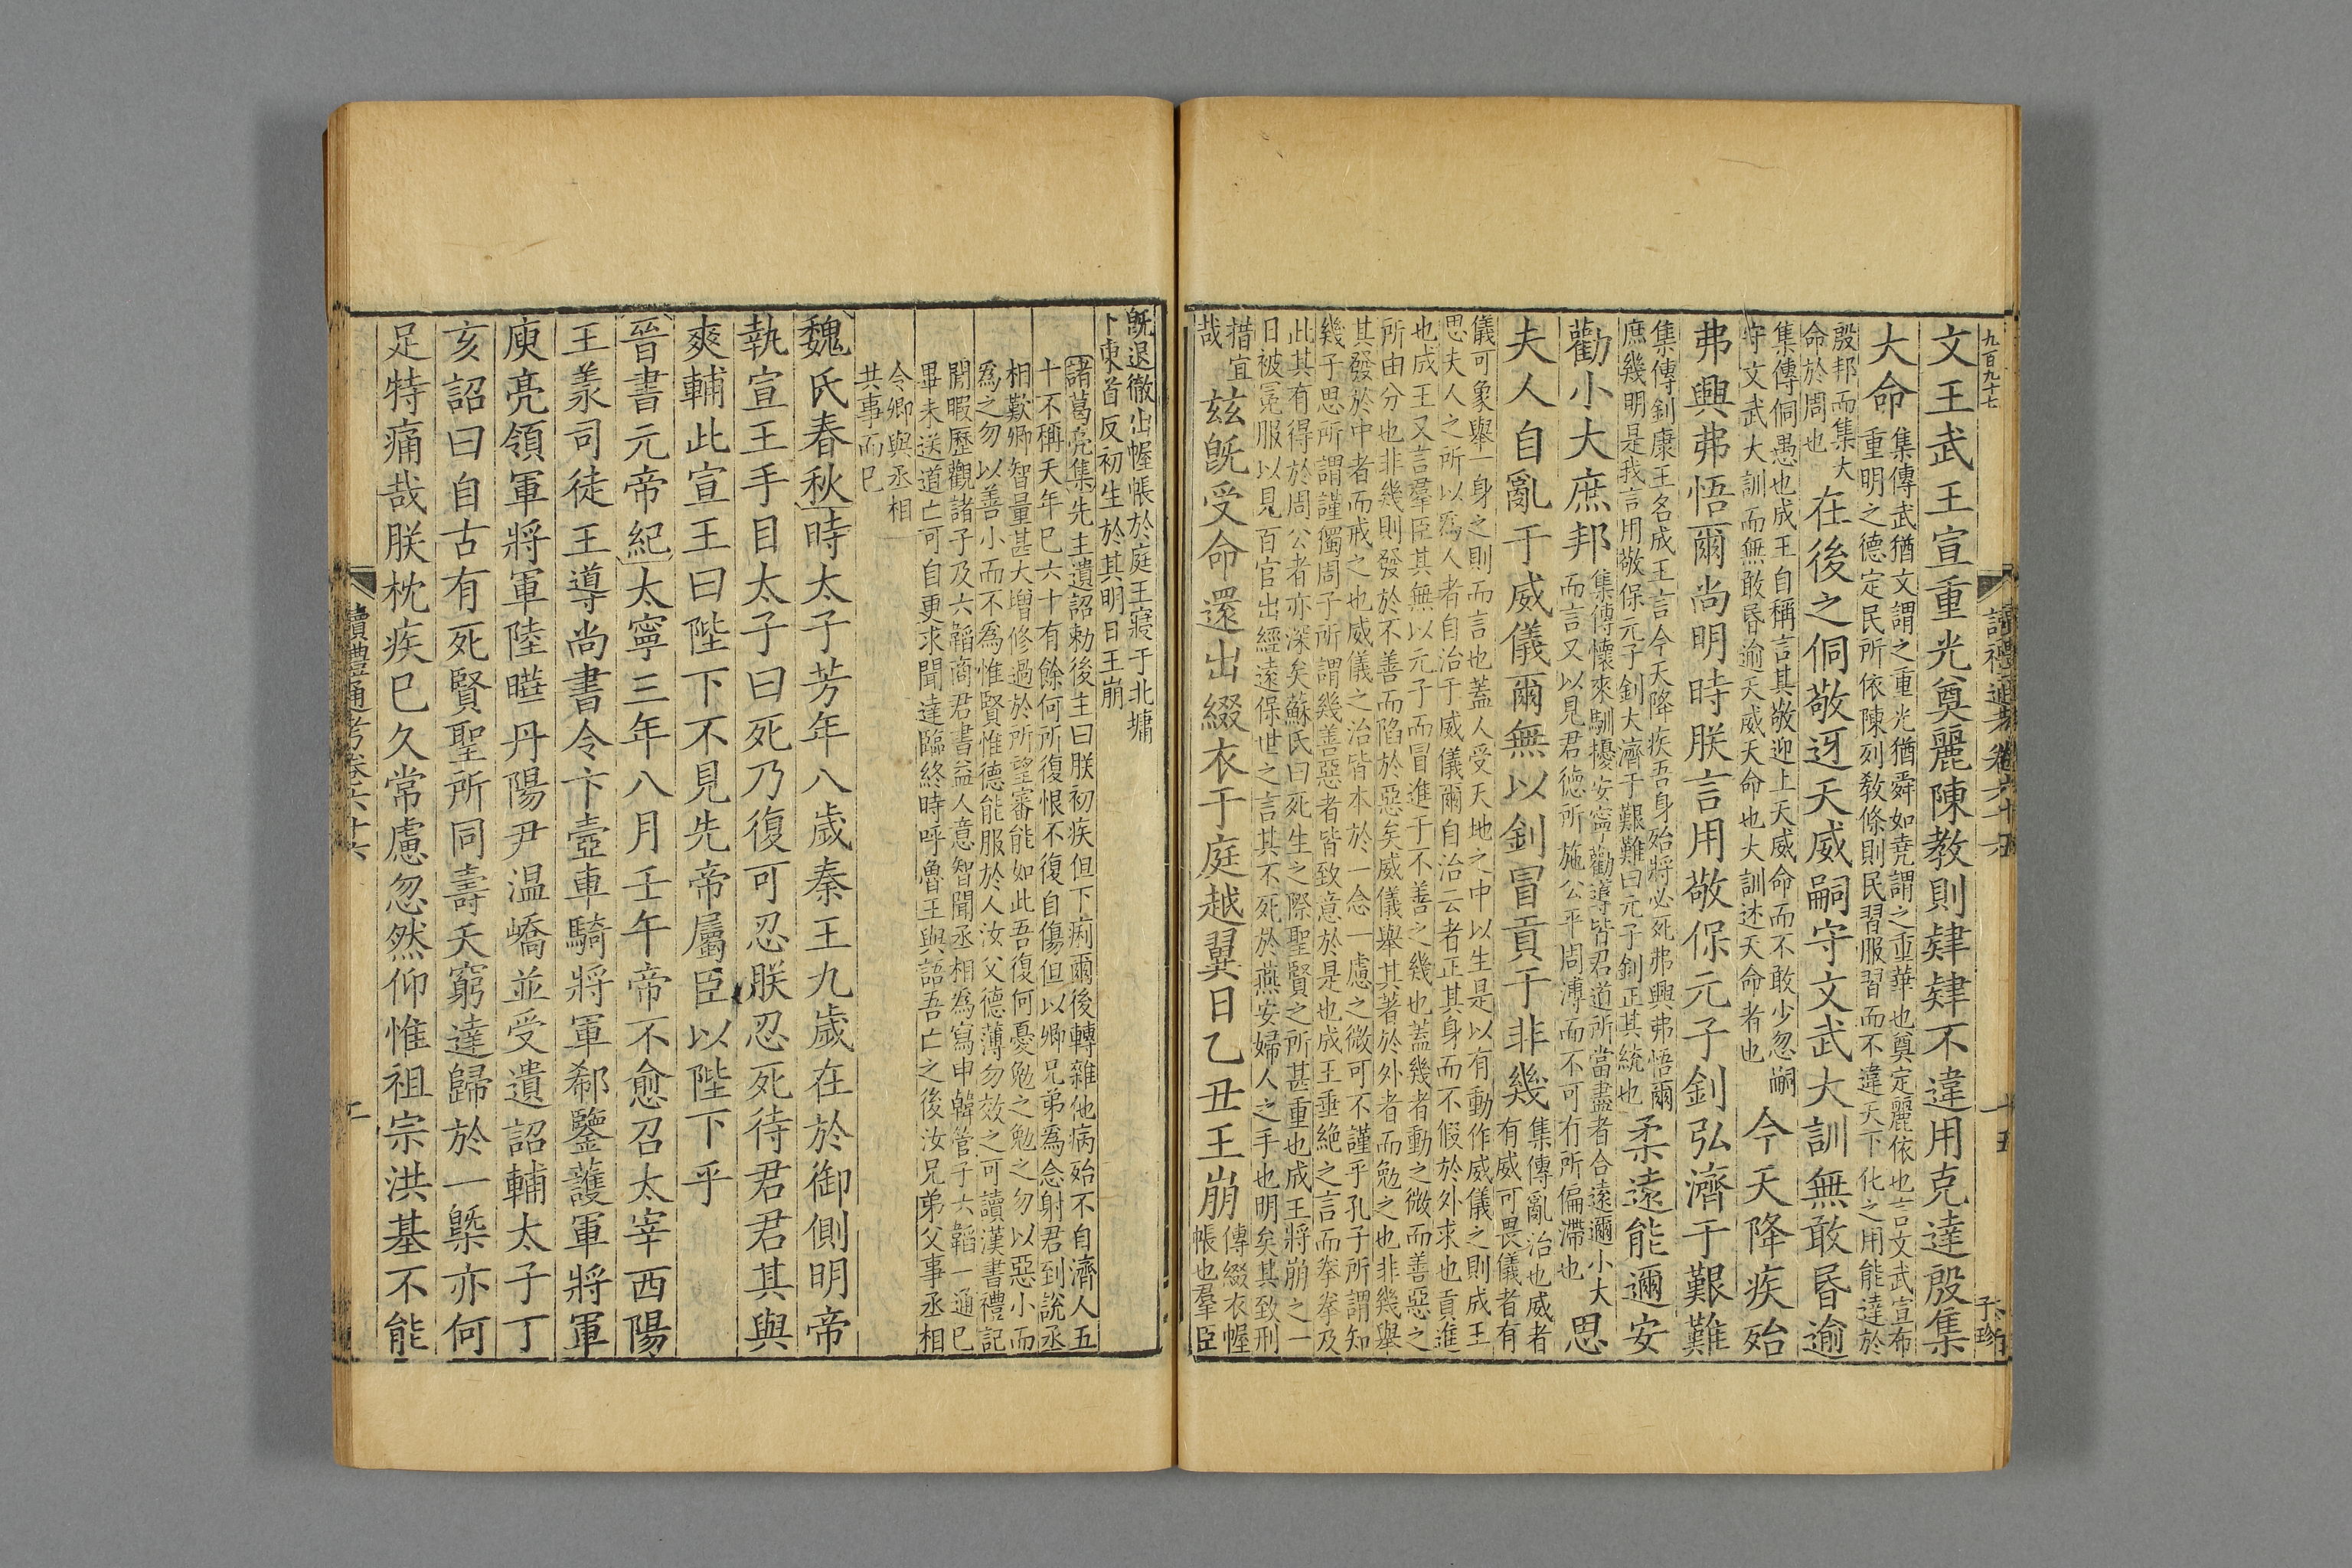 九百九十七
讀禮通考卷六十六
十五
子珍
文王武王宣重光奠麗陳教則肄肄不違用克達殷集
大命
集傳武猶文謂之重光猶舜如堯謂之重華也奠定麗依也言文武宣布
重明之德定民所依陳列教條則民習服習而不違天下化之用能達於
殷邦而集大
命於周也
在後之侗敬迓天威嗣守文武大訓無敢昏逾
集傳侗愚也成王自稱言其敬迎上天威命而不敢少忽嗣
守文武大訓而無敢昏逾天威天命也大訓述天命者也
今天降疾殆
弗興弗悟爾尚明時朕言用敬保元子釗弘濟于艱難
集傳釗康王名成王言今天降疾吾身殆將必死弗興弗悟爾
庶幾明是我言用敬保元子釗大濟于艱難曰元子釗正其統也
柔遠能邇安
勸小大庶邦
集傳懷來馴擾安寧勸導皆君道所當盡者合遠邇小大
而言又以見君德所施公平周溥而不可有所偏滯也
思
夫人自亂于威儀爾無以釗冒貢于非幾
集傳亂治也威者
有威可畏儀者有
儀可象舉一身之則而言也蓋人受天地之中以生是以有動作威儀之則成王
思夫人之所以爲人者自治于威儀爾自治云者正其身而不假於外求也貢進
也成王又言羣臣其無以元子而冒進于不善之幾也蓋幾者動之微而善惡之
所由分也非幾則發於不善而陷於惡矣威儀舉其著於外者而勉之也非幾舉
其發於中者而戒之也威儀之治皆本於一念一慮之微可不謹乎孔子所謂知
幾子思所謂謹獨周子所謂幾善惡者皆致意於是也成王垂絶之言而拳拳及
此其有得於周公者亦深矣蘇氏曰死生之際聖賢之所甚重也成王將崩之一
日被冕服以見百官出經遠保世之言其不死於燕安婦人之手也明矣其致刑
措宜
哉
茲旣受命還出綴衣于庭越翼日乙丑王崩
傳綴衣幄
帳也羣臣
旣退徹出幄帳於庭王寢于北墉
下東首反初生於其明日王崩
諸葛亮集先主遺詔勅後主曰朕初疾但下痢爾後轉雜他病殆不自濟人五
十不稱夭年已六十有餘何所復恨不復自傷但以卿兄弟爲念射君到說丞
相歎卿智量甚大增修過於所望審能如此吾復何憂勉之勉之勿以惡小而
爲之勿以善小而不爲惟賢惟德能服於人汝父德薄勿效之可讀漢書禮記
閒暇歷觀諸子及六韜商君書益人意智聞丞相爲寫申韓管子六韜一通已
畢未送道亡可自更求聞達臨終時呼魯王與語吾亡之後汝兄弟父事丞相
令卿與丞相
共事而已
魏氏春秋時太子芳年八歲秦王九歲在於御側明帝
執宣王手目太子曰死乃復可忍朕忍死待君君其與
爽輔此宣王曰陛下不見先帝屬臣以陛下乎
晉書元帝紀太寧三年八月壬午帝不愈召太宰西陽
王羕司徒王導尚書令卞壼車騎將軍郗鑒護軍將軍
庾亮領軍將軍陸曄丹陽尹温嶠並受遺詔輔太子丁
亥詔曰自古有死賢聖所同壽夭窮達歸於一槩亦何
足特痛哉朕枕疾已久常慮忽然仰惟祖宗洪基不能
讀禮通考卷六十六